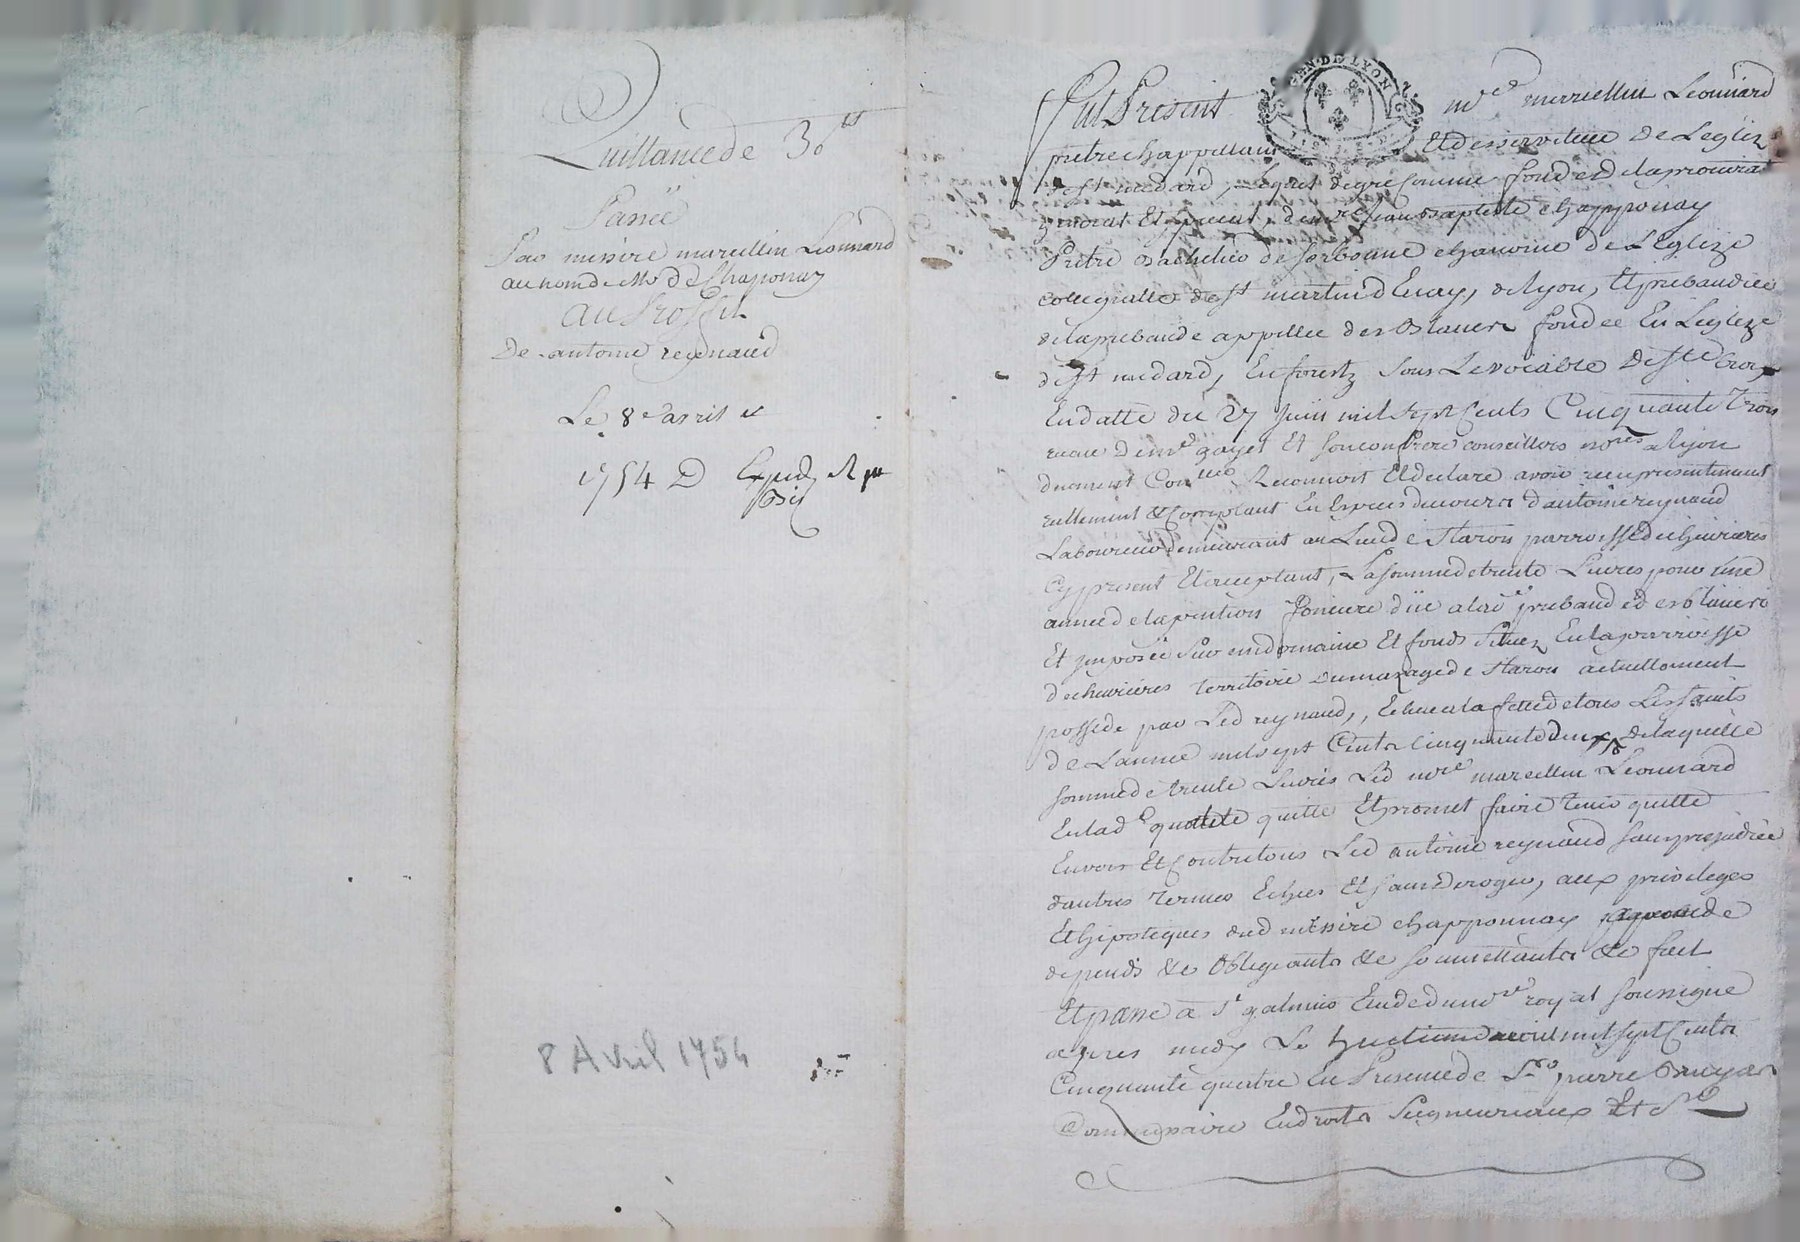 Quittance de 30ᵗᵗ
Passée
Par messire marcellin Leonnard
au nom de Mr De Chaponay
Au Proffit
De antoine reynaud
Le 8e avril
1754
8 Avril 1754
GEN DE LYON
Fut Present mre marcellin Leonnard
pretre chappellain Et desserviteur de Leglize
de st medard, Lequel de gré comme fondé de la procuration
generat Et specialle de mre jean Baptiste chapponay
Pretre Bachelier de sorbonne chanoine de Leglize
collegialle de st martin d'Enay, de lyon, Et prebandier
de la prebande appellée des Blancs fondée En Leglize
de st medard, En forestz sous Le vocable De ste Croix
En datte du 27 juin mil sept Cents Cinquante Trois
recue de mre gayet Et son confrere conseillers nores a lyon
duement Conllee Reconnoit Et declare avoir reçu presentement
reellement & Comptant En Especes du cours d'antoine reynaud
Laboureur demeurant au Lieu de Staron parroisse de chevrieres
Cy present Et acceptant, La somme de trente Livres pour une
année de la pention fonciere düe a lad prebande des blancs
Et jmposée sur un domaine Et fonds situez En la parroisse
de chevrieres territoire du mazage de Staron actuellement
possedé par Led reynaud, Echue a la fette de tous Les saints
de L'année mil sept Cents Cinquante deux, de laquelle
somme de trente Livres Led mre marcellin Leonnard
En lad qualité quitte Et promet faire tenir quitte
Envers Et Contre tous Led antoine reynaud sans prejudice
d'autres termes Echus Et sans deroger, aux privileges
Et hipoteques dud messire chapponnay de
depends &c Obligeants &c soumettants &c fait
Et passé a st galmier Etude du nore royal soussigné
apres midy Le huictieme avril mil sept Cents
Cinquante quatre En Presence de Sr pierre Bruyas
Commissaire En droits seigneuriaux Et Sr